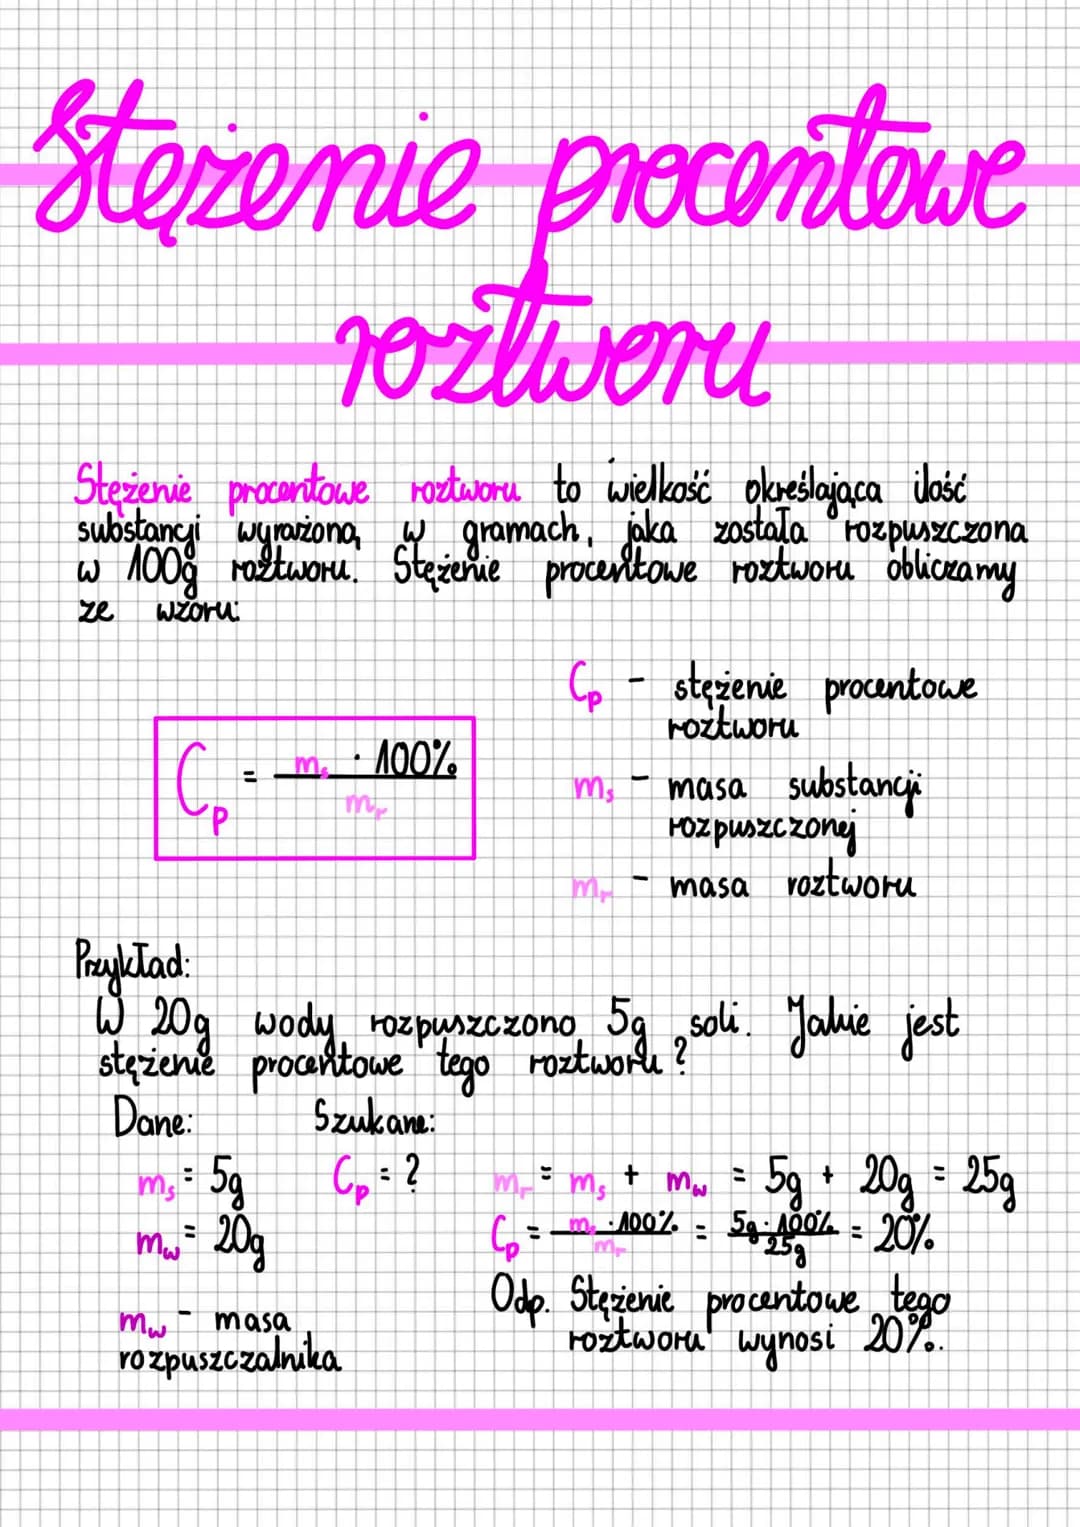 Stężenie procentowe
roztworu
Stężenie procentowe roztworu to wielkość określająca ilość
substancji wyrażoną w gramach, jaka została rozpuszczona
w 100g roztworu. Stężenie procentowe roztworu obliczamy
ze wzoru:
Cp = ms · 100% / mr
Cp - stężenie procentowe
roztworu
ms - masa substancji
rozpuszczonej
mr - masa roztworu
Przykład:
W 20g wody rozpuszczono 5g soli. Jakie jest
stężenie procentowe tego roztworu?
Dane: Szukane:
ms = 5g Cp = ? mr = ms + mw = 5g + 20g = 25g
mw = 20g Cp = ms · 100% / mr = 5g · 100% / 25g = 20%
Odp. Stężenie procentowe tego
roztworu wynosi 20%.
mw - masa
rozpuszczalnika